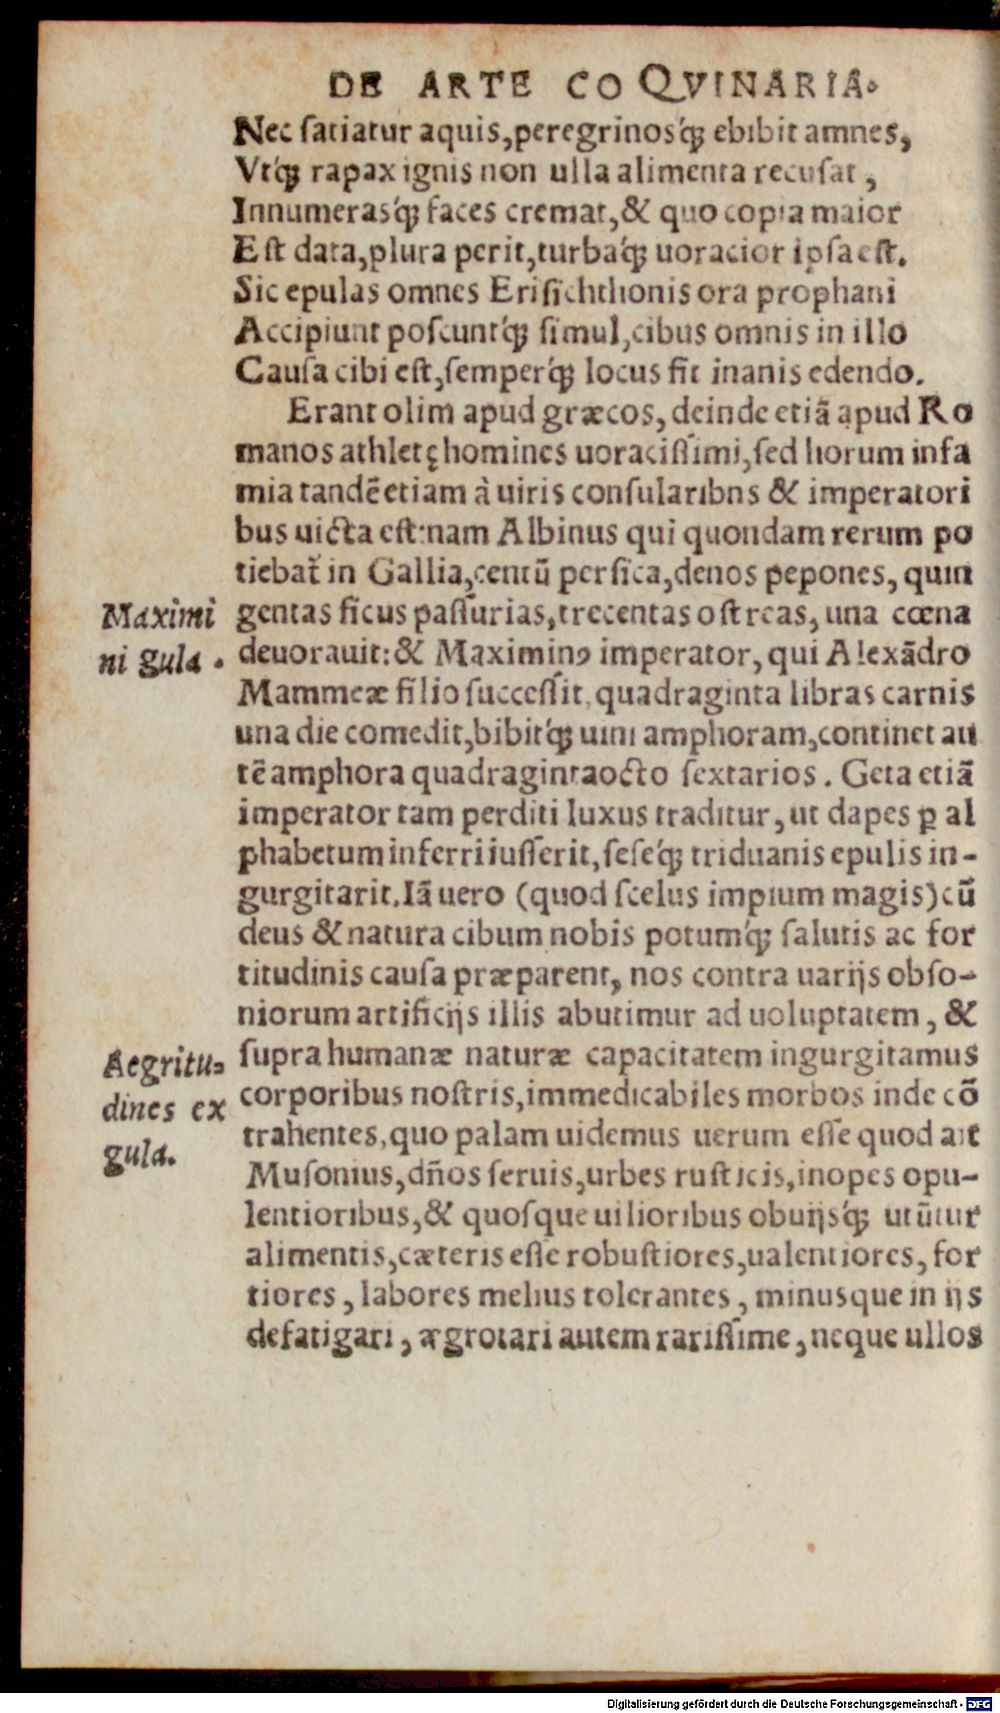 DE ARTE COQVINARIA.
Nec ſatiatur aquis, peregrinosq́ꝫ ebibit amnes,
Vtq́ꝫ rapax ignis non ulla alimenta recuſat,
Innumerasq́ꝫ faces cremat, & quo copia maior
Eſt data, plura perit, turbaq́ꝫ uoracior ipſa eſt.
Sic epulas omnes Eriſichthonis ora prophani
Accipiunt poſcuntq́ꝫ ſimul, cibus omnis in illo
Cauſa cibi eſt, ſemperq́ꝫ locus fit inanis edendo.
Erant olim apud græcos, deinde etiã apud Ro
manos athletę homines uoraciſſimi, ſed horum infa
mia tandẽ etiam à uiris conſularibns & imperatori
bus uicta eſt: nam Albinus qui quondam rerum po
tiebat᷑ in Gallia, centũ perſica, denos pepones, quin
gentas ficus paſſurias, trecentas oſtreas, una cœna
Maximi
deuorauit: & Maximinꝰ imperator, qui Alexãdro
ni gula.
Mammeæ filio ſucceſſit, quadraginta libras carnis
una die comedit, bibitq́ꝫ uini amphoram, continet au
tẽ amphora quadragintaocto ſextarios. Geta etiã
imperator tam perditi luxus traditur, ut dapes ꝑ al
phabetum inferri iuſſerit, ſeſeq́ꝫ triduanis epulis in-
gurgitarit. Iã uero (quod ſcelus impium magis) cũ
deus & natura cibum nobis potumq́ꝫ ſalutis ac for
titudinis cauſa præparent, nos contra uarijs obſo-
niorum artificijs illis abutimur ad uoluptatem, &
ſupra humanæ naturæ capacitatem ingurgitamus
Aegritu-
corporibus noſtris, immedicabiles morbos inde cõ
dines ex
trahentes, quo palam uidemus uerum eſſe quod ait
gula.
Muſonius, dños ſeruis, urbes ruſticis, inopes opu-
lentioribus, & quoſque uilioribus obuijsq́ꝫ utũtur
alimentis, cæteris eſſe robuſtiores, ualentiores, for
tiores, labores melius tolerantes, minusque in ijs
defatigari, ægrotari autem rariſſime, neque ullos
Digitalisierung gefördert durch die Deutsche Forschungsgemeinschaft - DFG